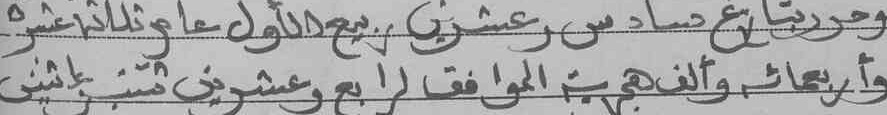 وحرر بتاريخ سادس وعشرين ربيع الأول عام ثلاثة عشر
وأربعمائة وألف هجرية الموافق لرابع وعشرين شتنبر اثنين